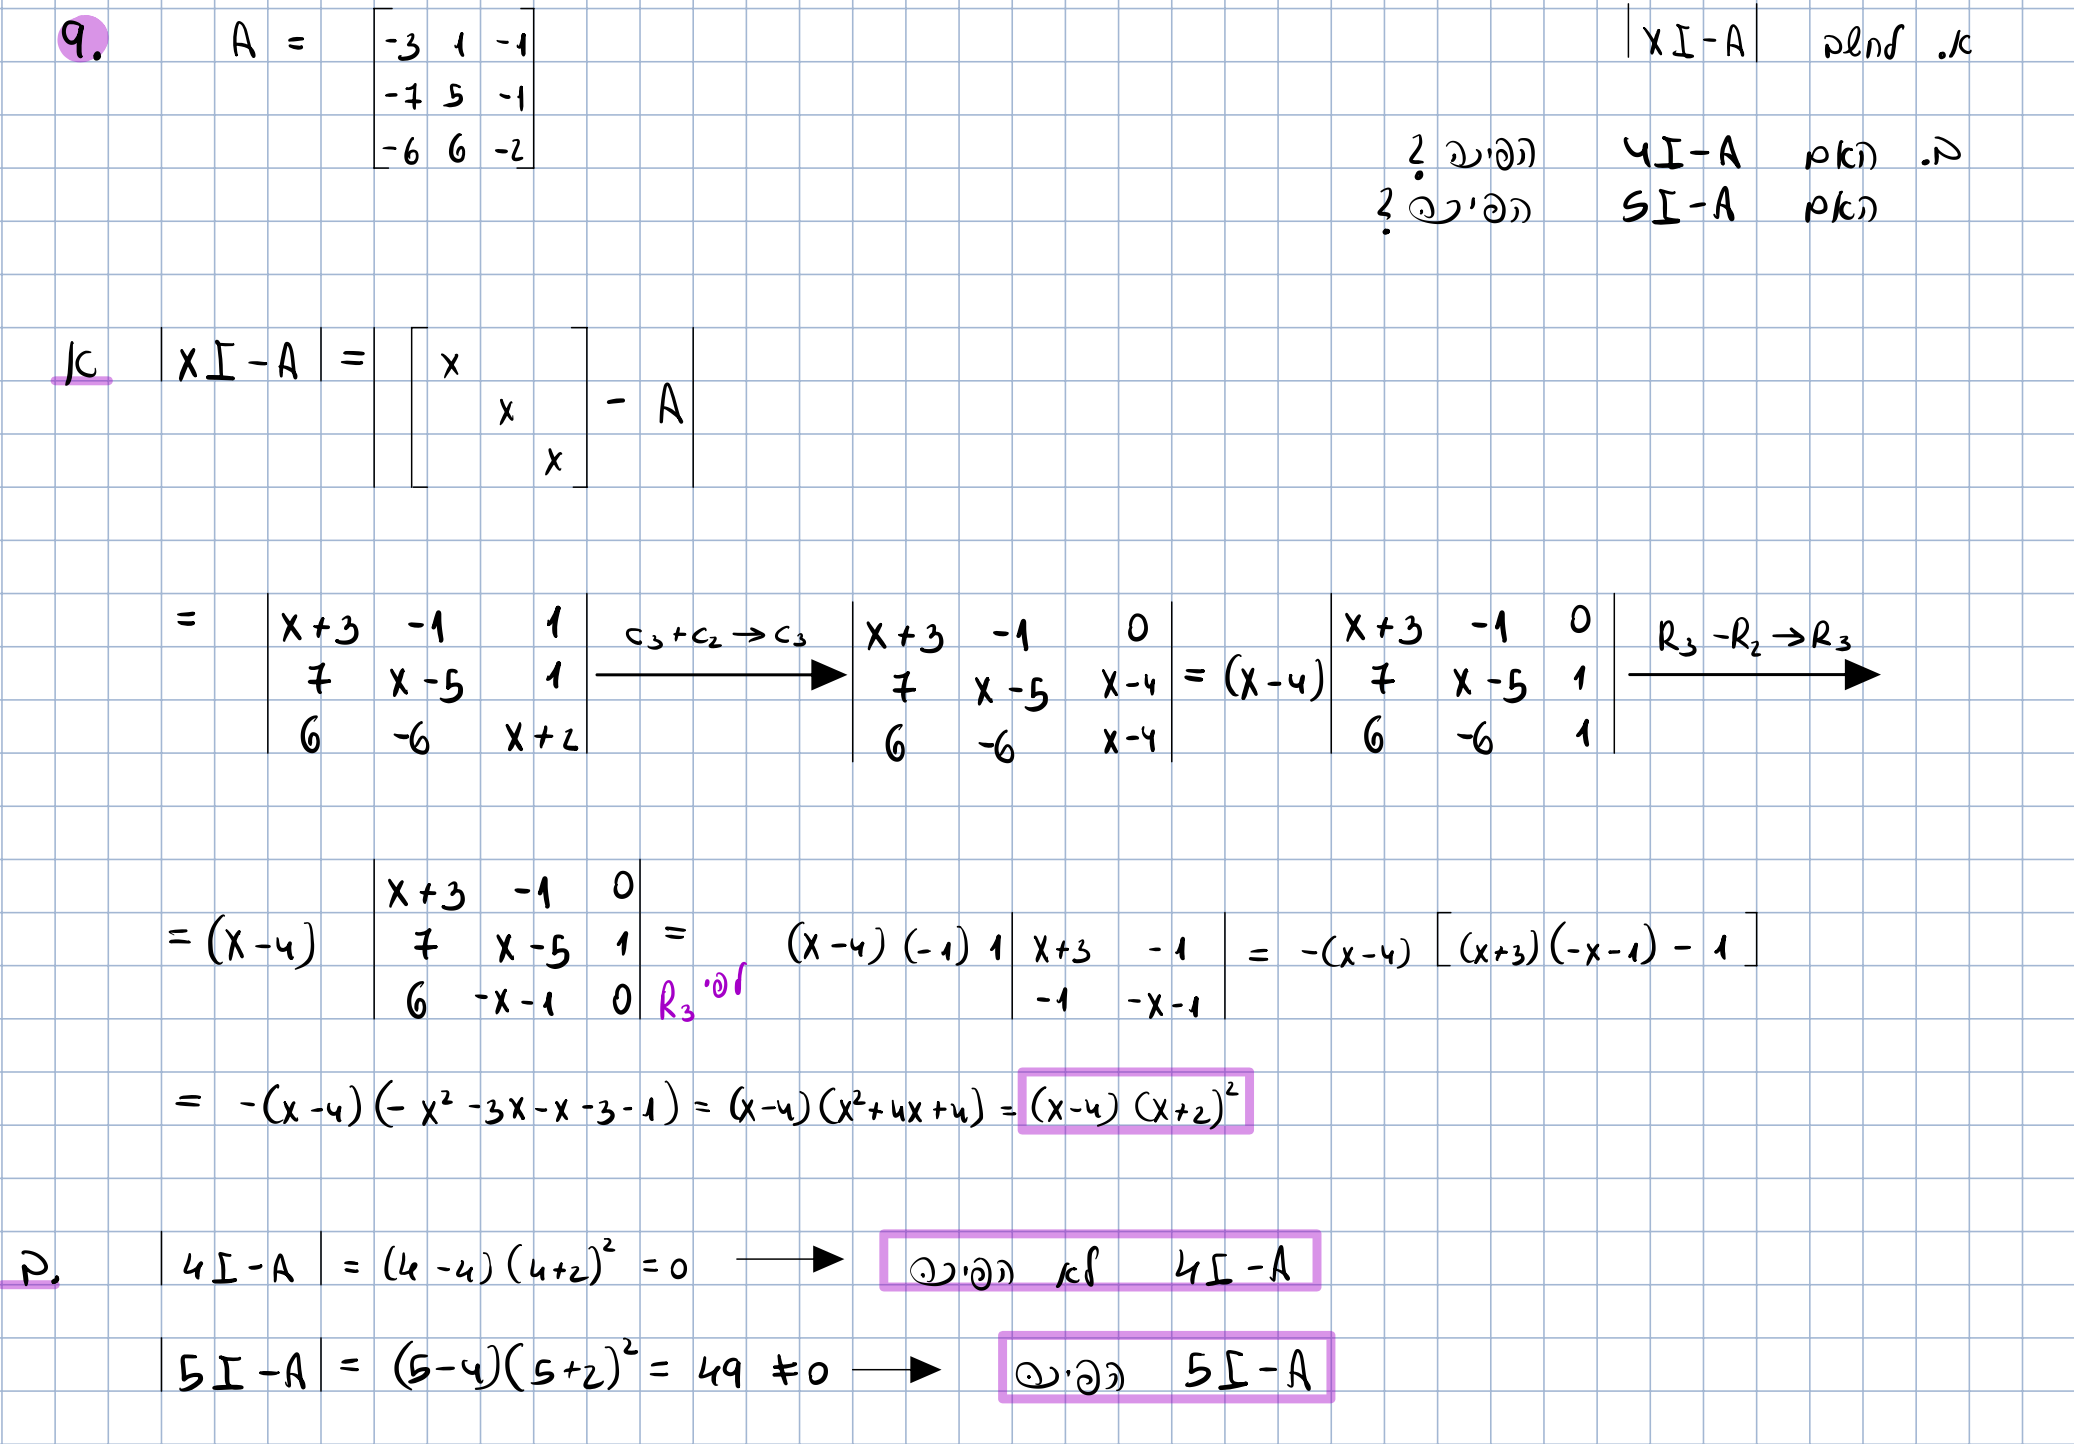 9. A = [-3 1 -1
-7 5 -1
-6 6 -2]
א. לחשב |XI-A|
ב. האם 4I-A הפיכה?
האם 5I-A הפיכה?
א |XI-A| = | [x
x
x] - A |
= |x+3 -1 1
7 x-5 1
6 -6 x+2| C₃+C₂→C₃ |x+3 -1 0
7 x-5 x-4
6 -6 x-4| = (x-4) |x+3 -1 0
7 x-5 1
6 -6 1| R₃-R₂→R₃
= (x-4) |x+3 -1 0
7 x-5 1
6 -x-1 0| = לפי R₃ (x-4)(-1)1 |x+3 -1
-1 -x-1| = -(x-4)[(x+3)(-x-1)-1]
= -(x-4)(-x²-3x-x-3-1) = (x-4)(x²+4x+4) = (x-4)(x+2)²
ב. |4I-A| = (4-4)(4+2)² = 0 → 4I-A לא הפיכה
|5I-A| = (5-4)(5+2)² = 49 ≠0 → 5I-A הפיכה